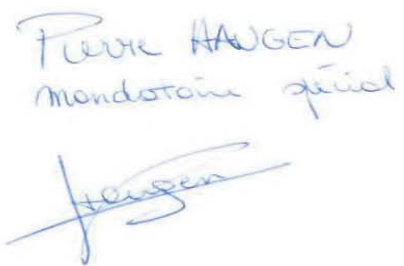 Pierre HAUGEN
mandataire spécial
Haugen